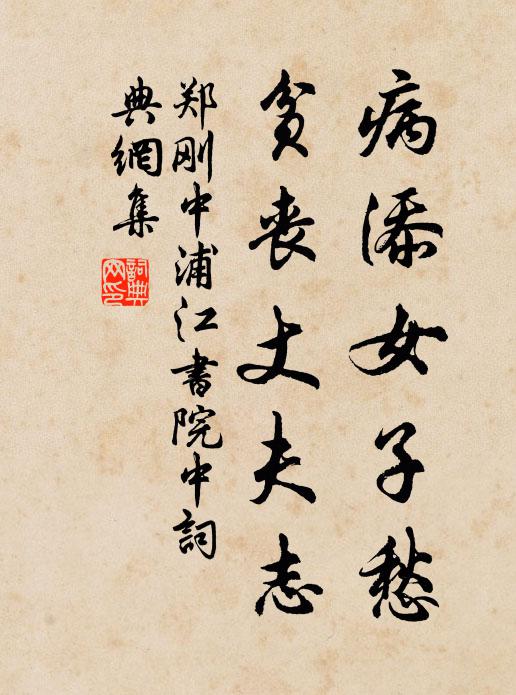 病添女子愁
贫丧丈夫志
郑刚中浦江书院中词
典网集
词典
网印